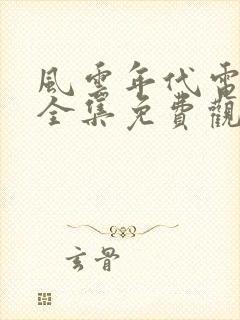 風雲年代電
全集免費觀
玄骨